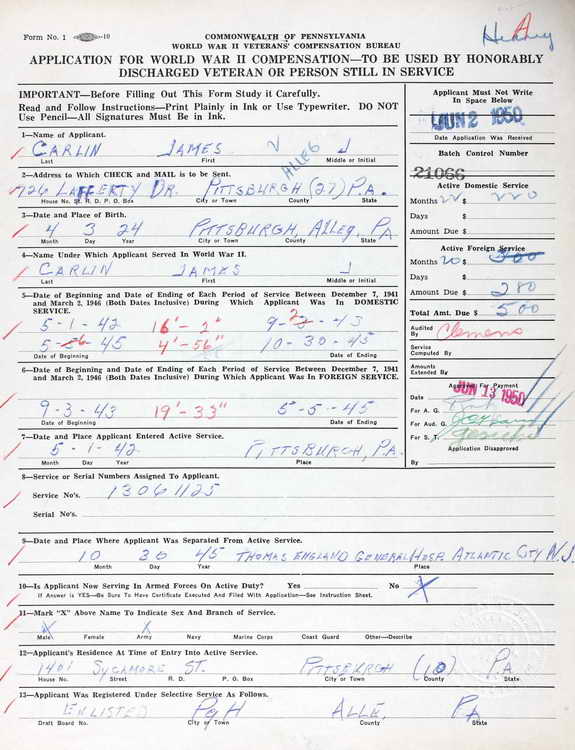 Form No. 1
COMMONWEALTH OF PENNSYLVANIA
WORLD WAR II VETERANS' COMPENSATION BUREAU
APPLICATION FOR WORLD WAR II COMPENSATION—TO BE USED BY HONORABLY
DISCHARGED VETERAN OR PERSON STILL IN SERVICE
IMPORTANT—Before Filling Out This Form Study it Carefully.
Read and Follow Instructions—Print Plainly in Ink or Use Typewriter. DO NOT
Use Pencil—All Signatures Must Be in Ink.
1—Name of Applicant.
CARLIN JAMES J
Last First Middle or Initial
ALLEG
2—Address to Which CHECK and MAIL is to be Sent.
726 LAFFERTY DR. PITTSBURGH (27) PA.
House No. St. R. D. P. O. Box City or Town County State
3—Date and Place of Birth.
4 3 24 PITTSBURGH, ALLEG, PA
Month Day Year City or Town County State
4—Name Under Which Applicant Served In World War II.
CARLIN JAMES J
Last First Middle or Initial
5—Date of Beginning and Date of Ending of Each Period of Service Between December 7, 1941
and March 2, 1946 (Both Dates Inclusive) During Which Applicant Was In DOMESTIC
SERVICE.
5-1-42 16'-2" 9-2-43
5-6-45 4'-56" 10-30-45
Date of Beginning Date of Ending
6—Date of Beginning and Date of Ending of Each Period of Service Between December 7, 1941
and March 2, 1946 (Both Dates Inclusive) During Which Applicant Was In FOREIGN SERVICE.
9-3-43 19'-33" 5-5-45
Date of Beginning Date of Ending
7—Date and Place Applicant Entered Active Service.
5-1-42 PITTSBURGH, PA.
Month Day Year Place
8—Service or Serial Numbers Assigned To Applicant.
Service No's. 13061125
Serial No's.
9—Date and Place Where Applicant Was Separated From Active Service.
10 30 45 THOMAS ENGLAND GENERAL HOSP. ATLANTIC CITY N.J.
Month Day Year Place
10—Is Applicant Now Serving In Armed Forces On Active Duty? Yes No X
If Answer is YES—Be Sure To Have Certificate Executed And Filed With Application—See Instruction Sheet.
11—Mark "X" Above Name To Indicate Sex and Branch of Service.
X X
Male Female Army Navy Marine Corps Coast Guard Other—Describe
12—Applicant's Residence At Time of Entry Into Active Service.
1401 SYCAMORE ST. PITTSBURGH (10) PA
House No. Street R. D. P. O. Box City or Town County State
13—Applicant Was Registered Under Selective Service As Follows.
ENLISTED PGH ALLE, PA
Draft Board No. City or Town County State
Applicant Must Not Write
In Space Below
JUN 2 1950
Date Application Was Received
Batch Control Number
21066
Active Domestic Service
Months 22 $ 220
Days $
Amount Due $
Active Foreign Service
Months 20 $ 300
Days $
Amount Due $ 280
Total Amt. Due $ 500
Audited By Clemens
Service
Computed By
Amounts
Extended By
Approved For Payment
Date JUN 13 1950
For A. G.
For Aud. G.
For S. T.
Application Disapproved
By